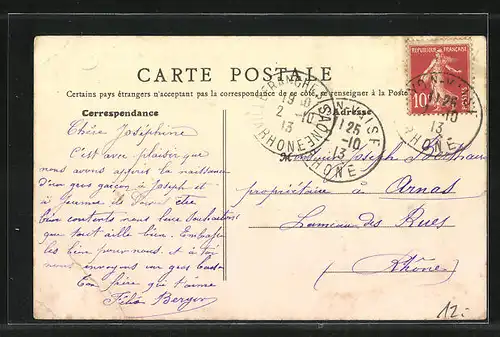 CARTE POSTALE
Certains pays étrangers n'acceptant pas la correspondance de ce côté, se renseigner à la Poste
Correspondance
Adresse
REPUBLIQUE FRANÇAISE
10
Chère Joséphine
C'est avec plaisir que
nous avons appris la naissance
d'un gros garçon à Joseph et
à Jeanne
bien contents nous leur souhaitons
que tout aille bien. Embrasse
les bien pour nous. et à toi
nous envoyons un gros
Ton frère qui t'aime
Félix Berger
Monsieur Joseph
propriétaire à Arnas
hameau des Rues
(Rhône)
VILLEFRANCHE S SAÔNE
RHÔNE
19 30
2 -10
13
RHONE
25
-10
13
25
-10
13
RHONE
12.-